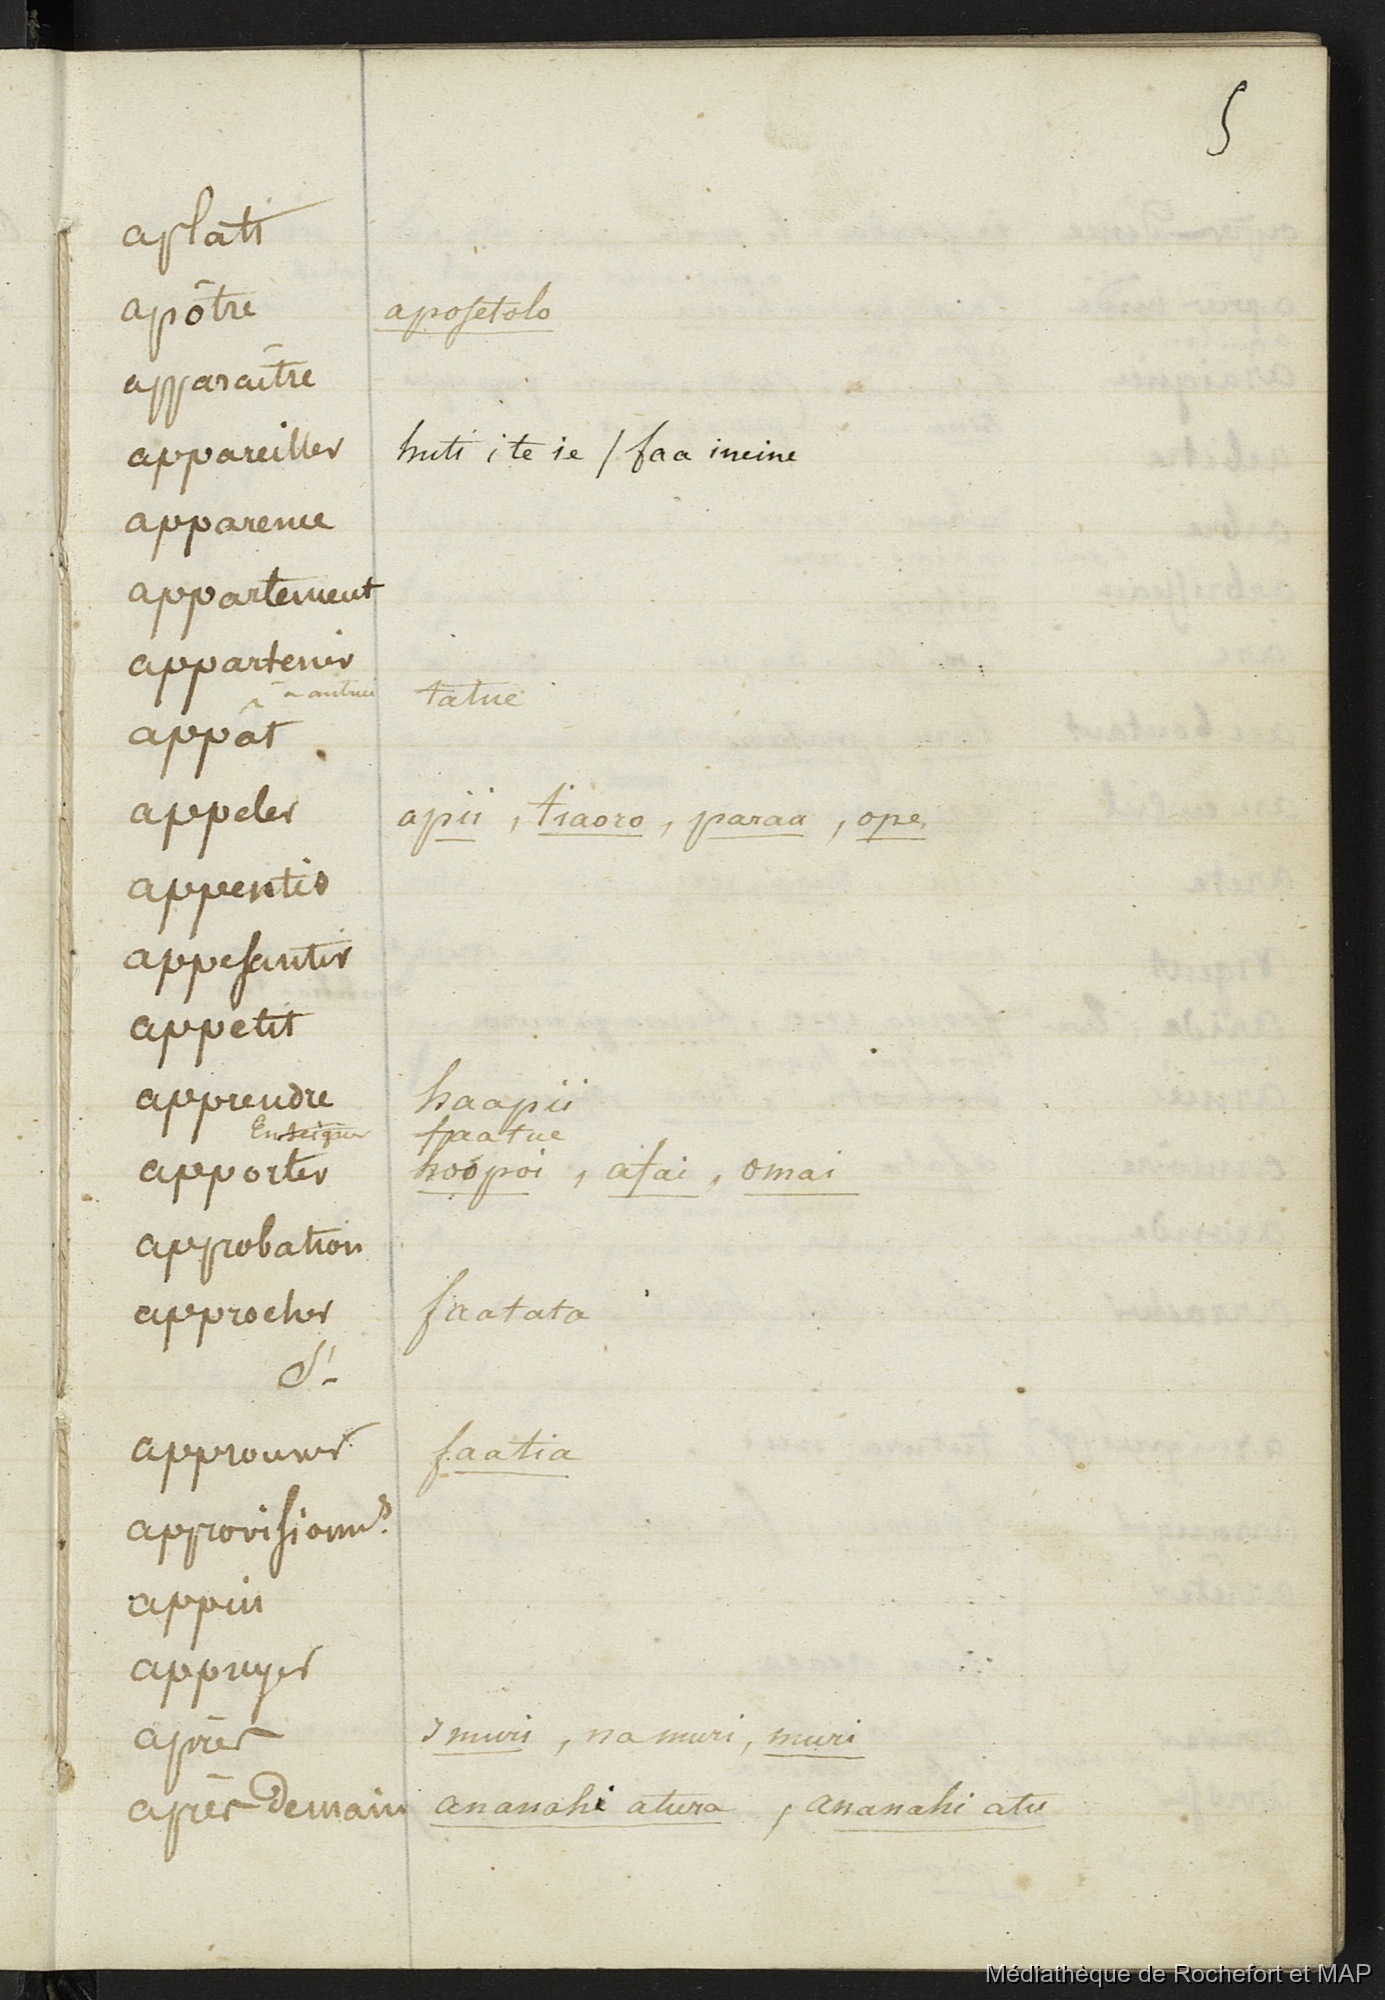 5
aplati
apôtre aposetolo
apparaître
appareiller huti i te ie / faa ineine
apparence
appartement
appartenir
à autrui tatue
appât
appeler apii, tiaoro, paraa, ope.
appentis
appesantir
appetit
apprendre haapii
Enseigner faatue
apporter hoopoi, afai, omai
approbation
approcher faatata
d'-
approuver faatia
approvisionnr.
appui
appuyer
après I muri, na muri, muri
après Demain ananahi atura, ananahi atu
Médiathèque de Rochefort et MAP